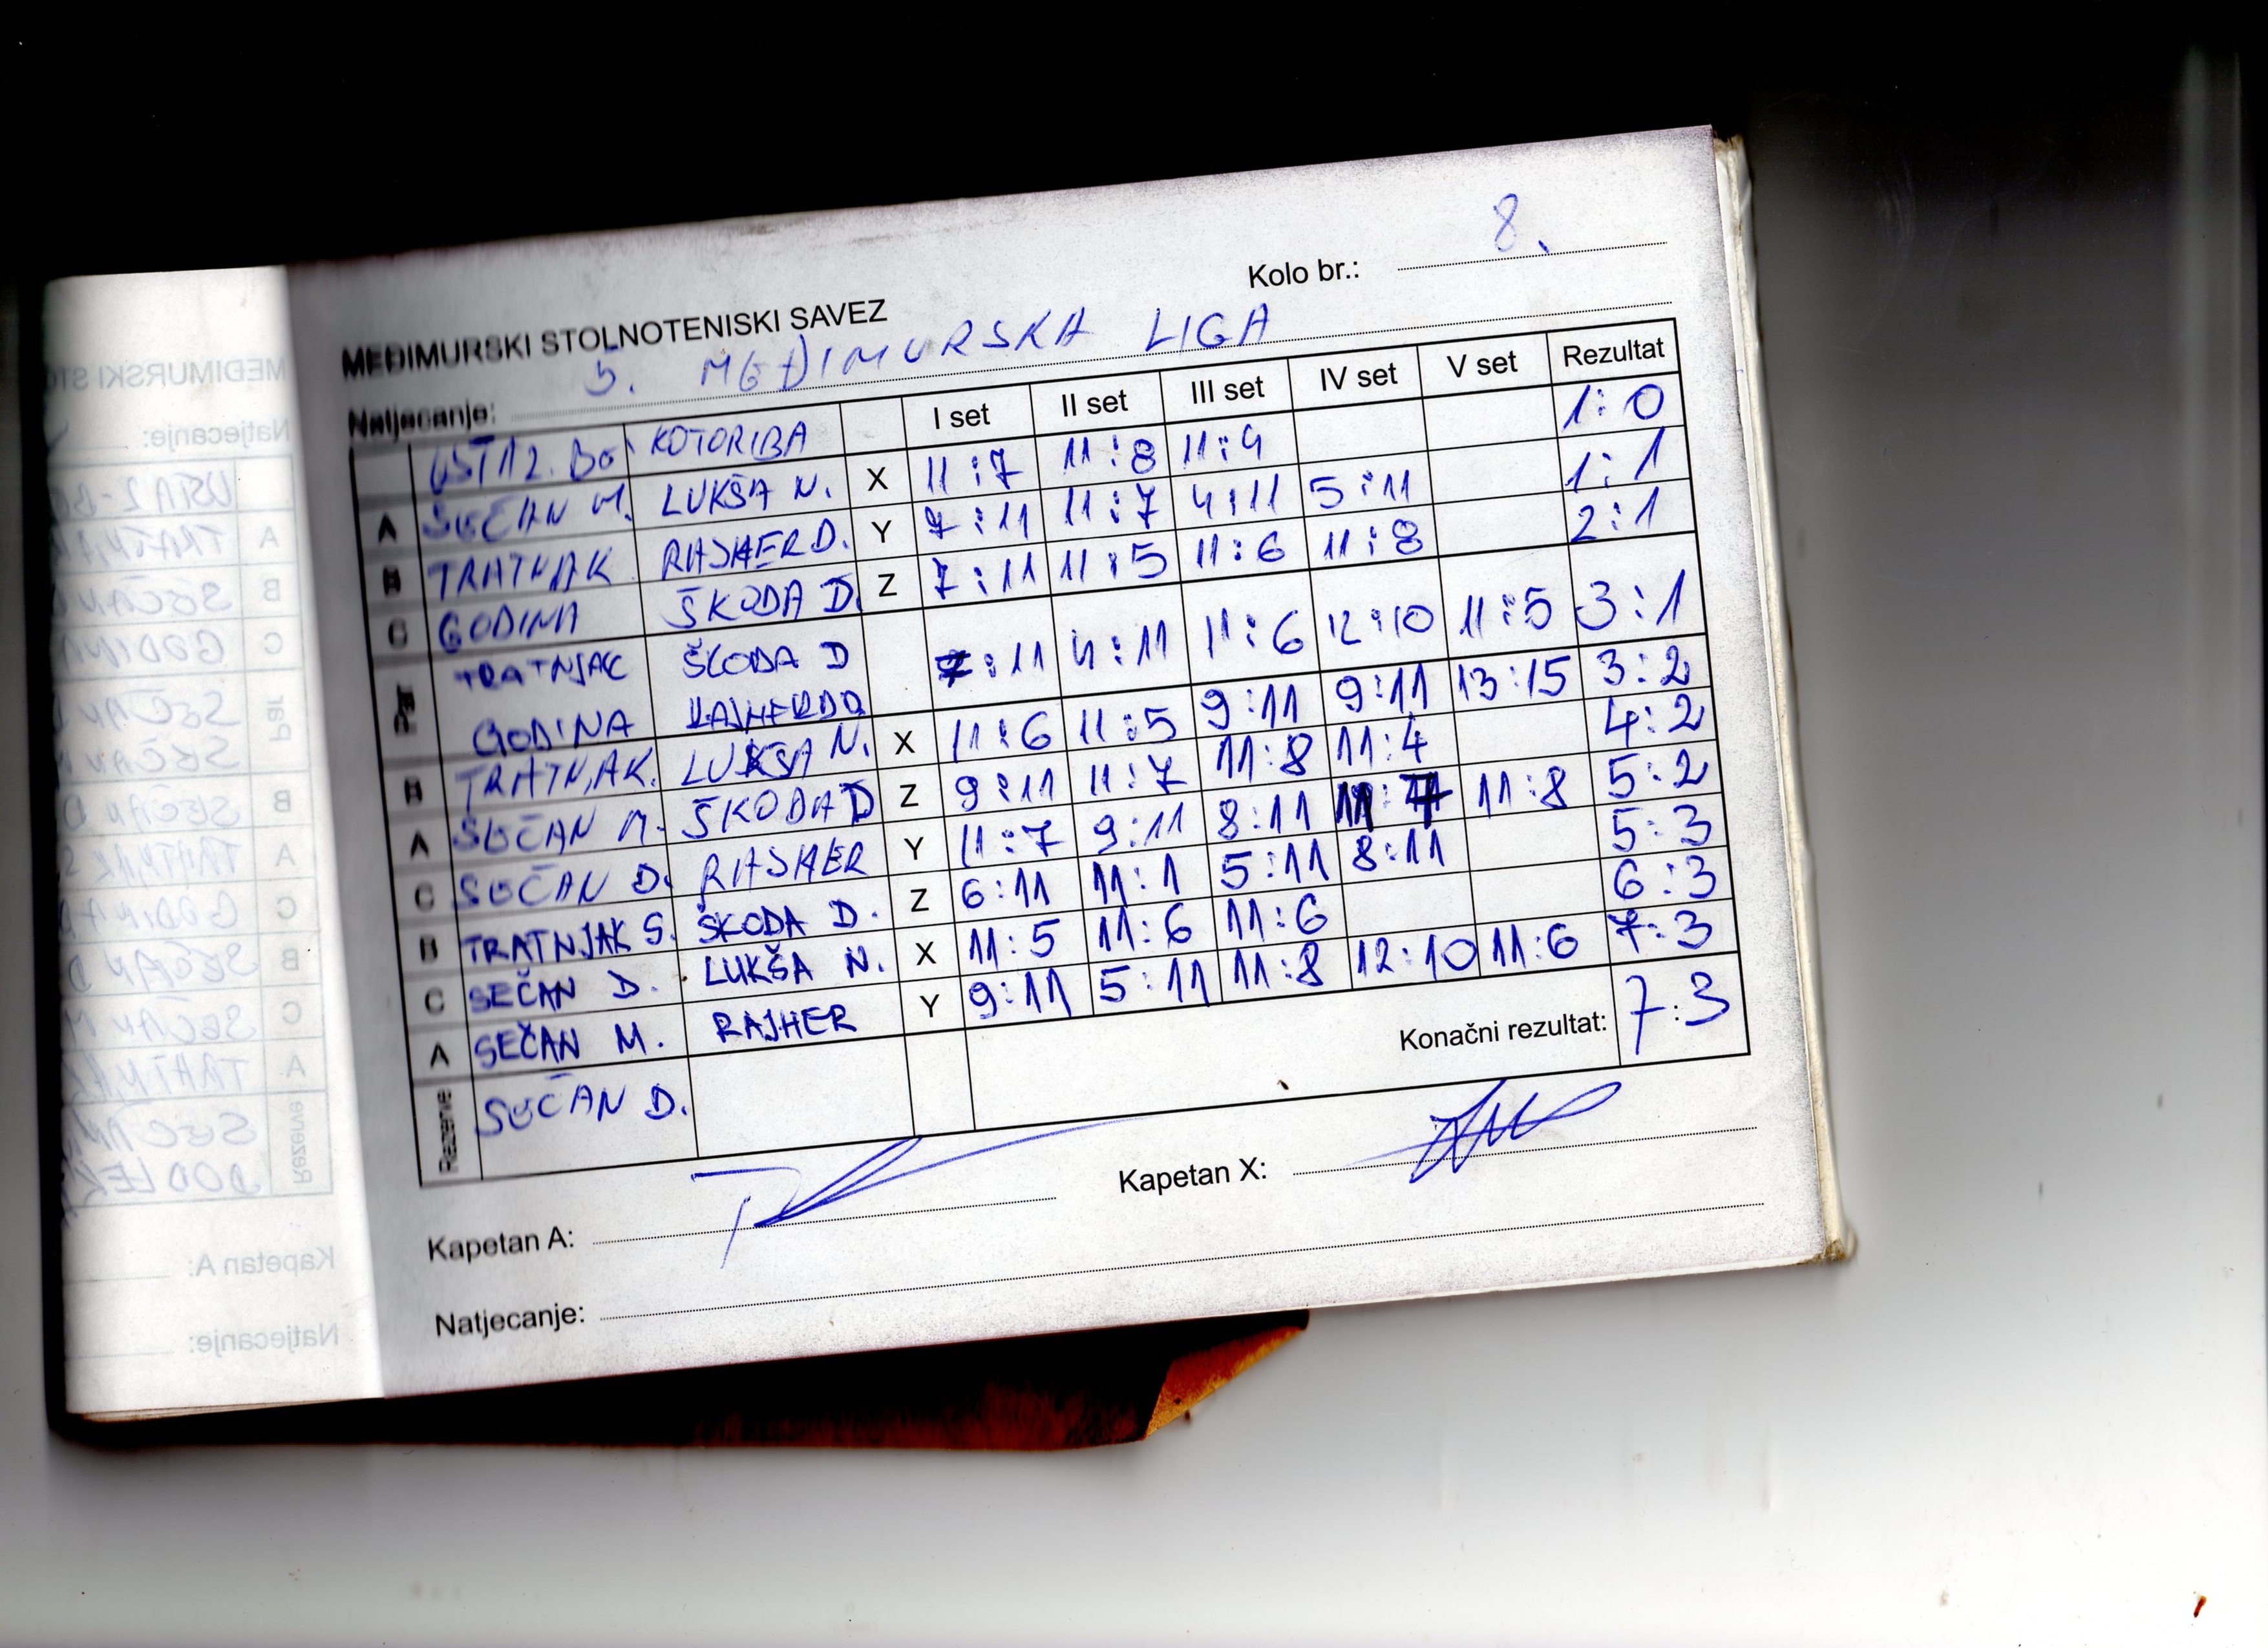 Kolo br.: 8.
MEĐIMURSKI STOLNOTENISKI SAVEZ
Natjecanje: 5. MEĐIMURSKA LIGA
KOTORIBA I set II set III set IV set V set Rezultat
A SEČAN M. LUKŠA N. X 11:7 11:8 11:9 1:0
B TRATNJAK RAJHER D. Y 7:11 11:7 4:11 5:11 1:1
C GODINA ŠKODA D. Z 7:11 11:5 11:6 11:8 2:1
Par TRATNJAK ŠKODA D 7:11 4:11 11:6 12:10 11:5 3:1
GODINA RAJHER
B TRATNJAK. LUKŠA N. X 11:6 11:5 9:11 9:11 13:15 3:2
A SEČAN M. ŠKODA D Z 9:11 11:7 11:8 11:4 4:2
C SEČAN D. RAJHER Y 11:7 9:11 8:11 11:8 5:2
B TRATNJAK S. ŠKODA D. Z 6:11 11:1 5:11 8:11 5:3
C SEČAN D. LUKŠA N. X 11:5 11:6 11:6 6:3
A SEČAN M. RAJHER Y 9:11 5:11 11:8 12:10 11:6 7:3
Rezerve SEČAN D. Konačni rezultat: 7:3
Kapetan A: Kapetan X:
Natjecanje: